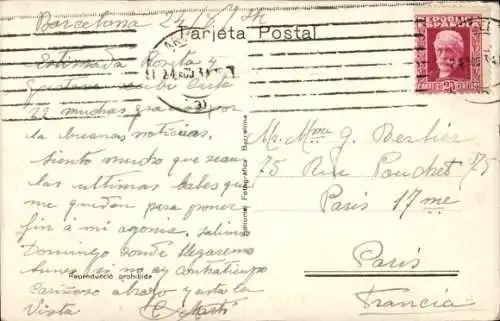 Barcelona 24/8/34
Tarjeta Postal
REPUBLICA
ESPAÑOLA
24 AGO 34
Estimada Rosita y
Gustavo recibi Carta
22 muchas gracias por
la buenas noticias.
siento mucho que sean
las ultimas bales que
me queden para poner
fin á mi agonia. salimos
Domingo donde llegaremo
Lunes si no ay contratiempo
Cariñoso abrazo y asta la
Vista C. Marti
Reproducció prohibida
Editorial Fotografica Barcelona
Mr. Mme G. Berlier
75 Rue Pouchet 75
Paris 17me
Paris
Francia